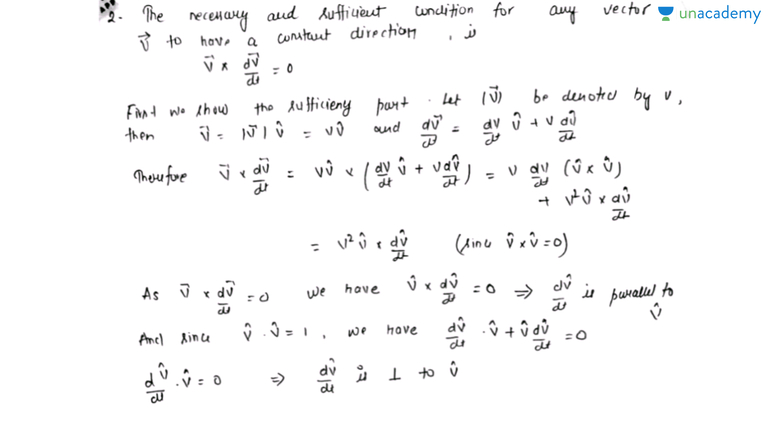 2. The necessary and sufficient condition for any vector
unacademy
V⃗ to have a constant direction, is
V⃗ × dV⃗/dt = 0
First we show the sufficieny part. Let |V⃗| be denoted by v,
then V⃗ = |V⃗| V̂ = vV̂ and dV⃗/dt = dv/dt V̂ + v dV̂/dt
Therefore V⃗ × dV⃗/dt = vV̂ × (dv/dt V̂ + v dV̂/dt) = v dv/dt (V̂ × V̂)
+ v² V̂ × dV̂/dt
= v² V̂ × dV̂/dt (since V̂ × V̂ = 0)
As V⃗ × dV⃗/dt = 0 we have V̂ × dV̂/dt = 0 ⇒ dV̂/dt is parallel to
V̂
And since V̂ · V̂ = 1, we have dV̂/dt · V̂ + V̂ dV̂/dt = 0
dV̂/dt · V̂ = 0 ⇒ dV̂/dt is ⊥ to V̂